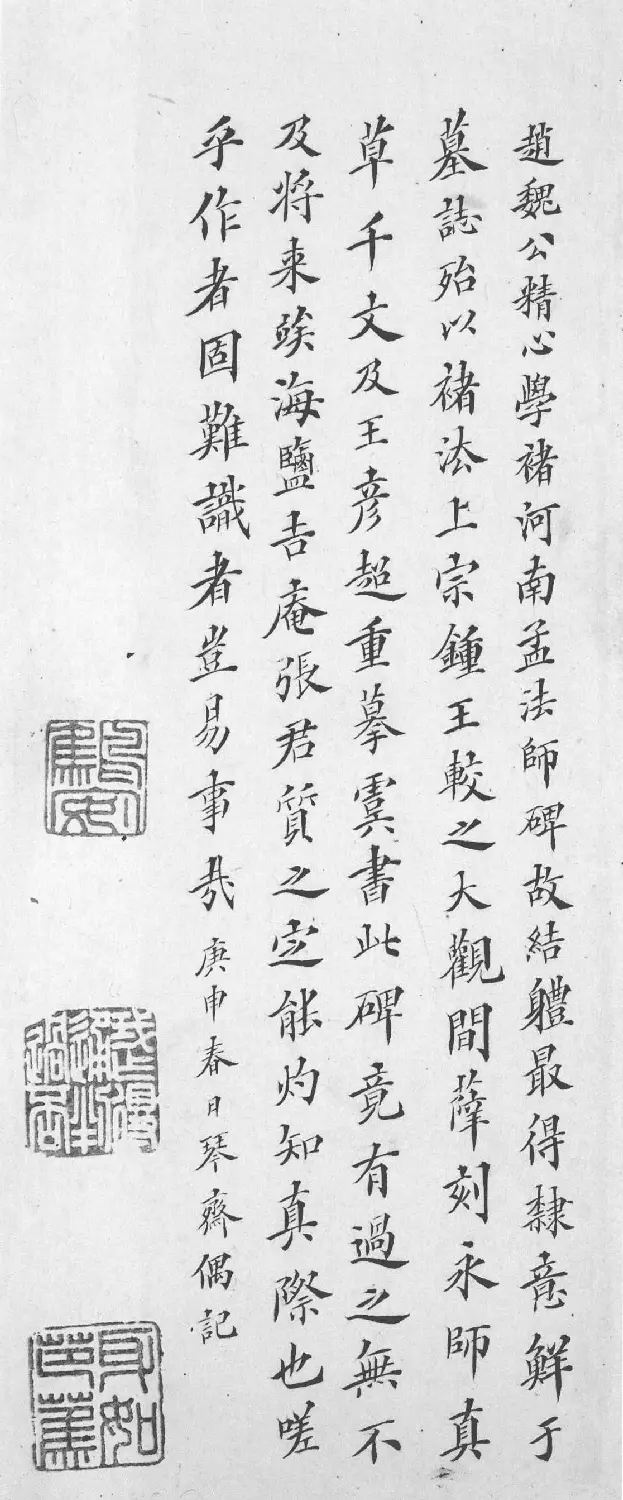 趙魏公精心學褚河南孟法師碑故結軆最得隸意鮮于
墓誌殆以褚法上宗鍾王較之大觀間薛刻永師真
草千文及王彦超重摹虞書此碑竟有過之無不
及将来俟海鹽吉庵張君質之定能灼知真際也嗟
乎作者固難識者豈易事㢤
庚申春日琴齋偶記
身如芭蕉